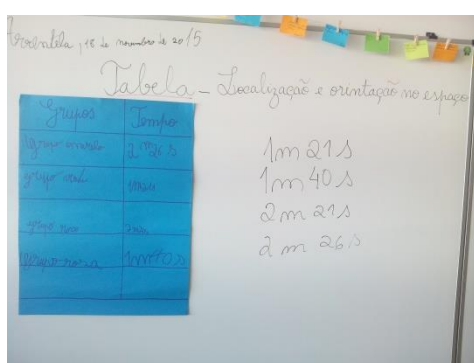 , 18 de novembro de 2015
Tabela - Localização e orientação no espaço
Grupos Tempo
grupo 2m26s
grupo azul 1m21
grupo
grupo rosa 1m40s
1m 21s
1m 40s
2m 21s
2m 26s